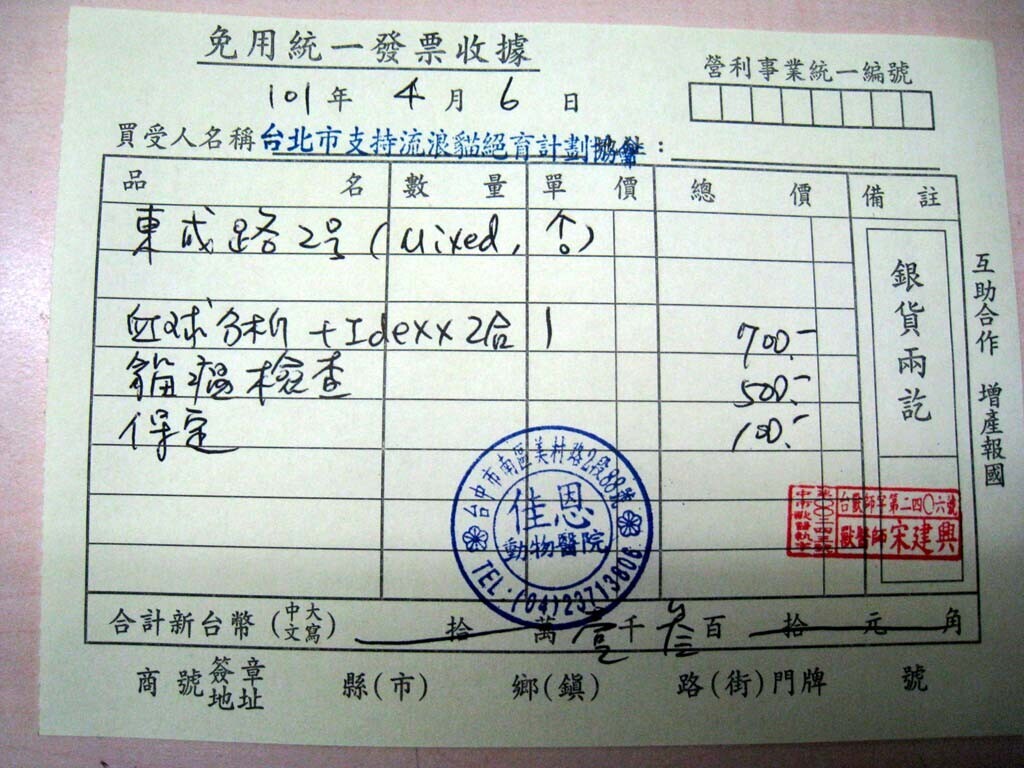 免用統一發票收據
營利事業統一編號
101年 4月 6日
買受人名稱 台北市支持流浪貓絕育計劃協會:
品名 數量 單價 總價 備註
東成路2号(Mixed, 合)
血球分析+Idexx2合 1 700.-
貓瘟檢查 500.-
保定 100.-
銀貨兩訖
互助合作 增產報國
台中市南區美村路2段88號
佳恩
動物醫院
TEL·(04)23713606
台獸師字第二四〇六號
獸醫師宋建興
合計新台幣(中文大寫) 拾 萬 壹千 叁百 拾 元 角
商號簽章地址 縣(市) 鄉(鎮) 路(街)門牌 號